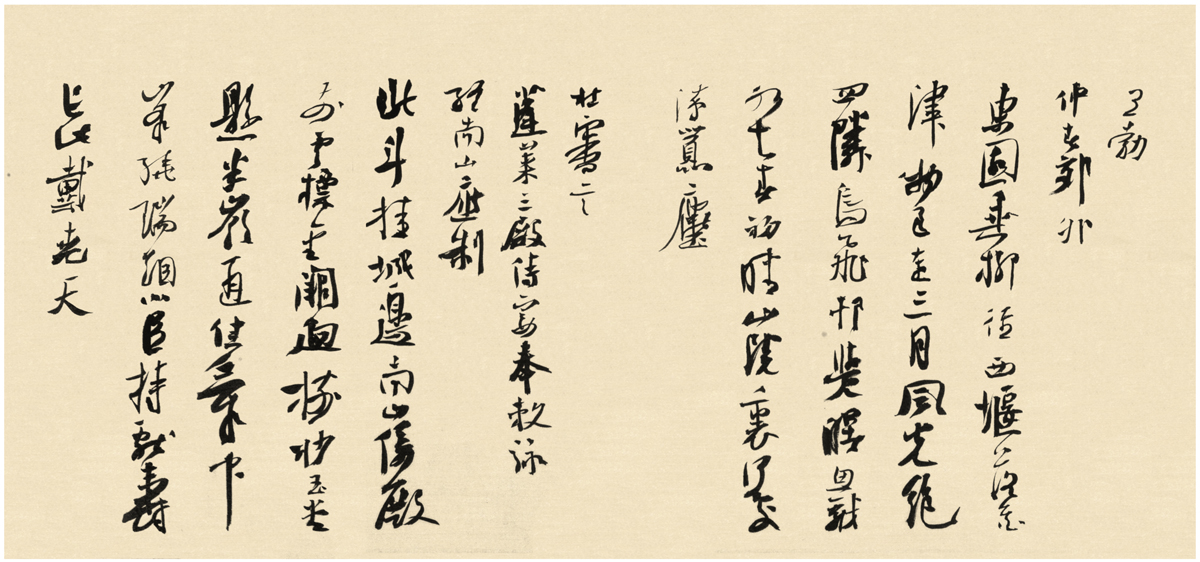 王勃
仲春郊外
東園垂柳徑西堰落花
津物色連三月風光絕
四隣鳥飛村覺曙魚戲
水知春初晴山院裏何處
染囂塵
杜審言
蓬萊三殿侍宴奉敕詠
終南山應制
北斗挂城邊南山倚殿
前雲標金闕迥樹杪玉堂
懸半嶺通佳氣中
峯繞瑞煙小臣持獻壽
長此戴堯天